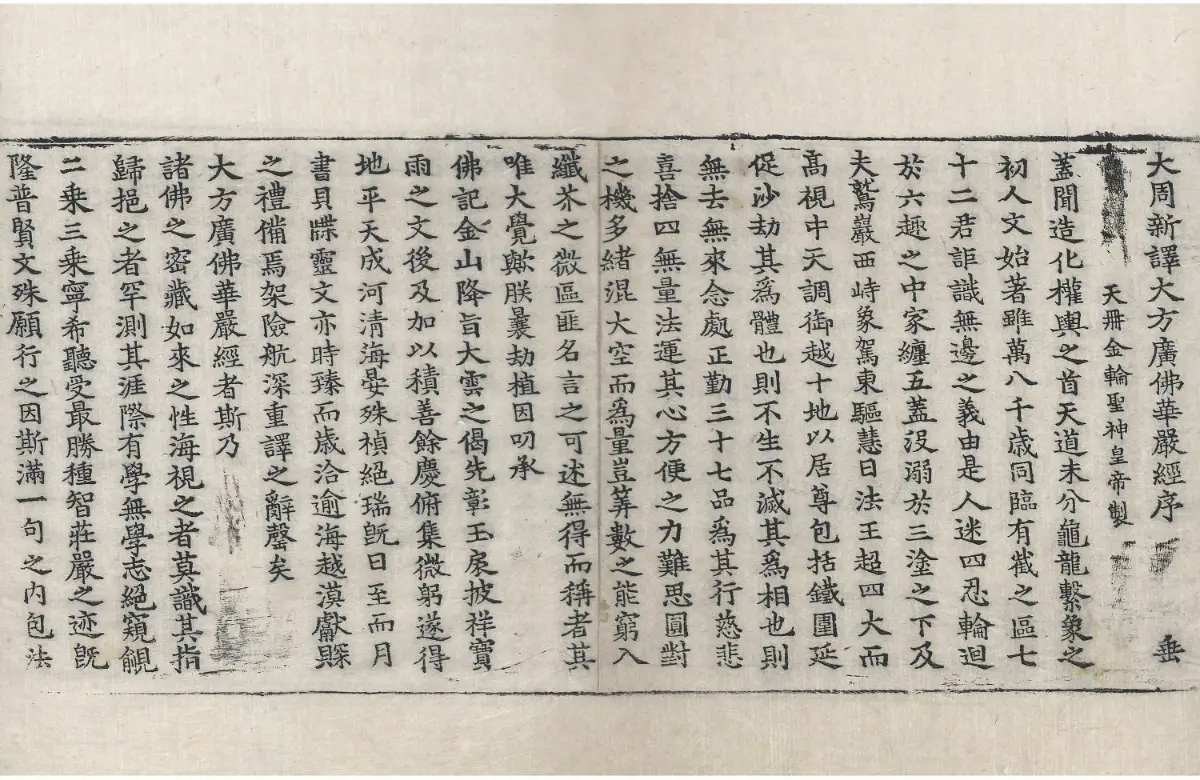 大周新譯大方廣佛華嚴經序 垂
天冊金輪聖神皇帝製
蓋聞造化權輿之首天道未分龜龍繫象之
初人文始著雖萬八千歲同臨有截之區七
十二君詎識無邊之義由是人迷四忍輪迴
於六趣之中家纏五蓋沒溺於三塗之下及
夫鷲巖西峙象駕東驅慧日法王超四大而
高視中天調御越十地以居尊包括鐵圍延
促沙劫其為體也則不生不滅其為相也則
無去無來念處正勤三十七品為其行慈悲
喜捨四無量法運其心方便之力難思圓對
之機多緒混大空而為量豈筭數之能窮入
纖芥之微區匪名言之可述無得而稱者其
唯大覺歟朕曩劫植因叨承
佛記金山降旨大雲之偈先彰玉扆披祥寶
雨之文後及加以積善餘慶俯集微躬遂得
地平天成河清海晏殊禎絕瑞既日至而月
書貝牒靈文亦時臻而歲洽逾海越漠獻賝
之禮備焉架險航深重譯之辭罄矣
大方廣佛華嚴經者斯乃
諸佛之密藏如來之性海視之者莫識其指
歸挹之者罕測其涯際有學無學志絕窺覦
二乘三乘寧希聽受最勝種智莊嚴之迹既
隆普賢文殊願行之因斯滿一句之內包法